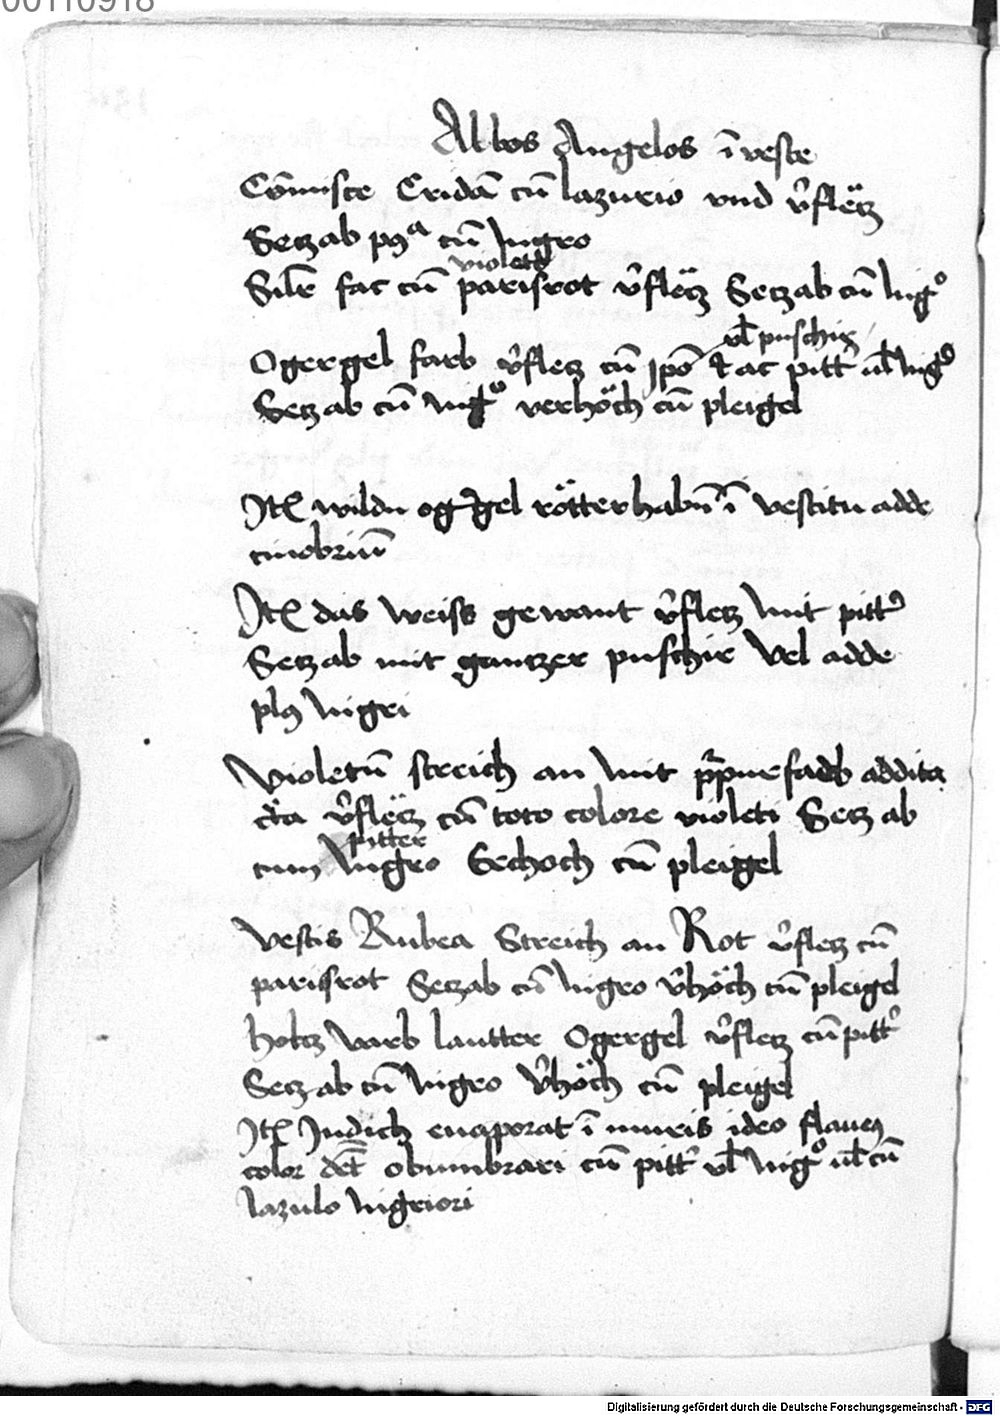 00110918
Albos Angelos ī veste
Cōmisce Cridā cū lazurio vnd v̓fletz
Setz ab pꝯᵃ cū nigro
violett
Silr̄ fac cū parisrot v̓fletz Setz ab cū nigº
vl̄ puschir
Ogergel farb v̓fletz cū ac pitt̓ vl̄ nigº
Setz ab cū nigº verhöch cū pleigel
Itē wildu gel rötter habn̄ ī vestitu adde
cinobriū
Itē das weiss gewant v̓fletz mit pitt̓
Setz ab mit gantzer puschir vel adde
plꝯ nigri
Violetū streich an mit farb addita
v̓fletz cū toto colore violeti Setz ab
pitter
cum nigro Gechoch cū pleigel
Vestis Rubea Streich an Rot v̓fletz cū
parisrot Setz ab cū nigro v̓höch cū pleigel
holtz varb lautter Ogergel v̓fletz cū pitt̓
Setz ab cū nigro v̓höch cū pleigel
Itē Indich euaporat ī muris ideo flauꝯ
color det̄ obumbrari cū pitt̓ vl̄ nigº vl̄ cū
lazulo nigriori
Digitalisierung gefördert durch die Deutsche Forschungsgemeinschaft - DFG